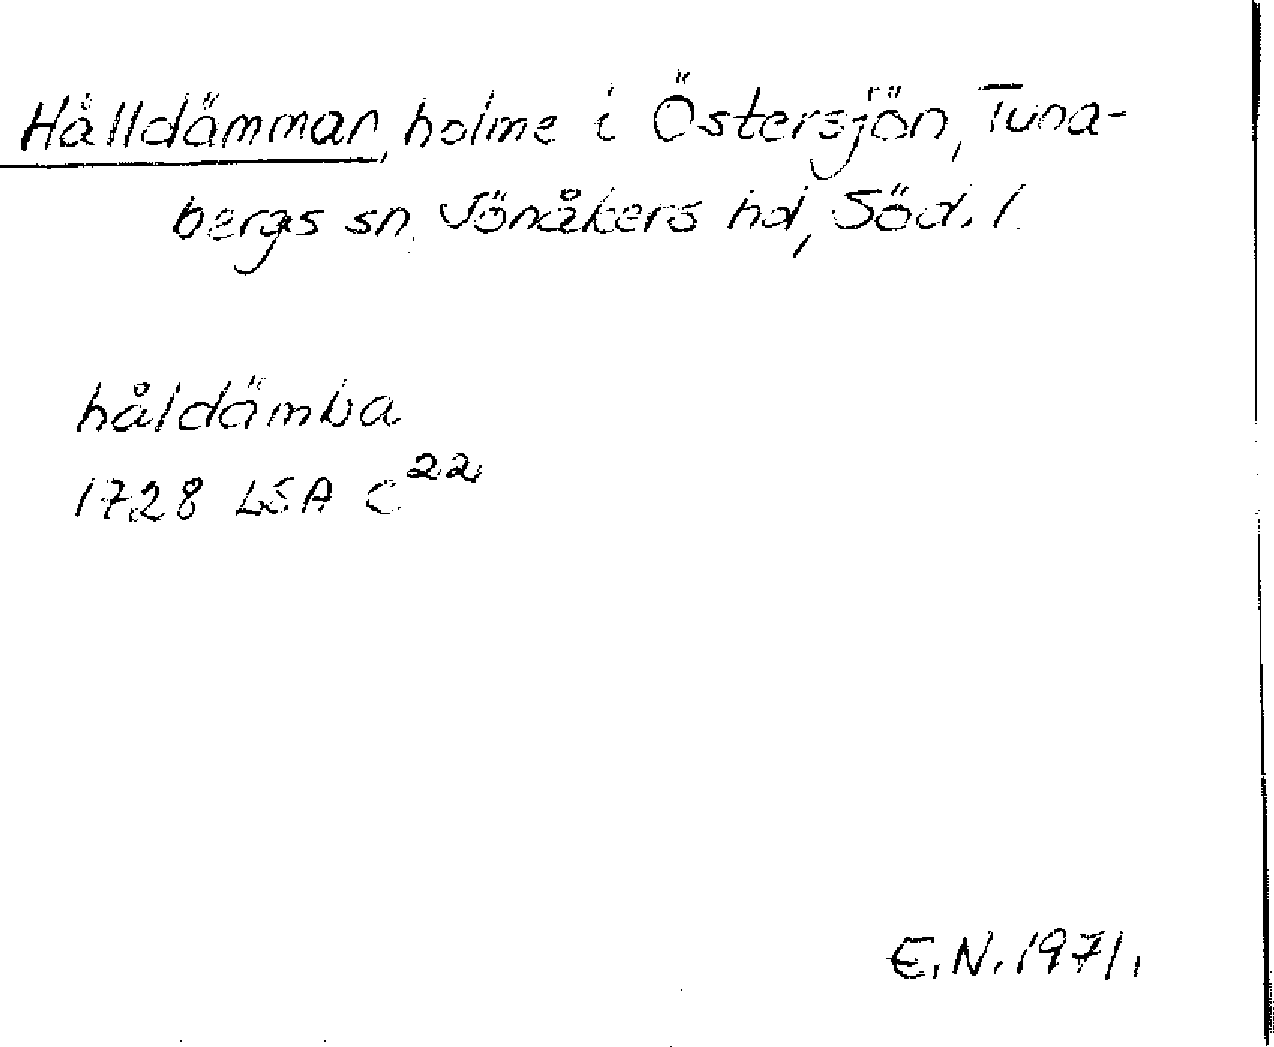 Hålldämman, holme i Östersjön, Tuna-
bergs sn, Jönåkers hd, Söd. l.
håldämba
1728 LSA C²²
E.N. 1971.